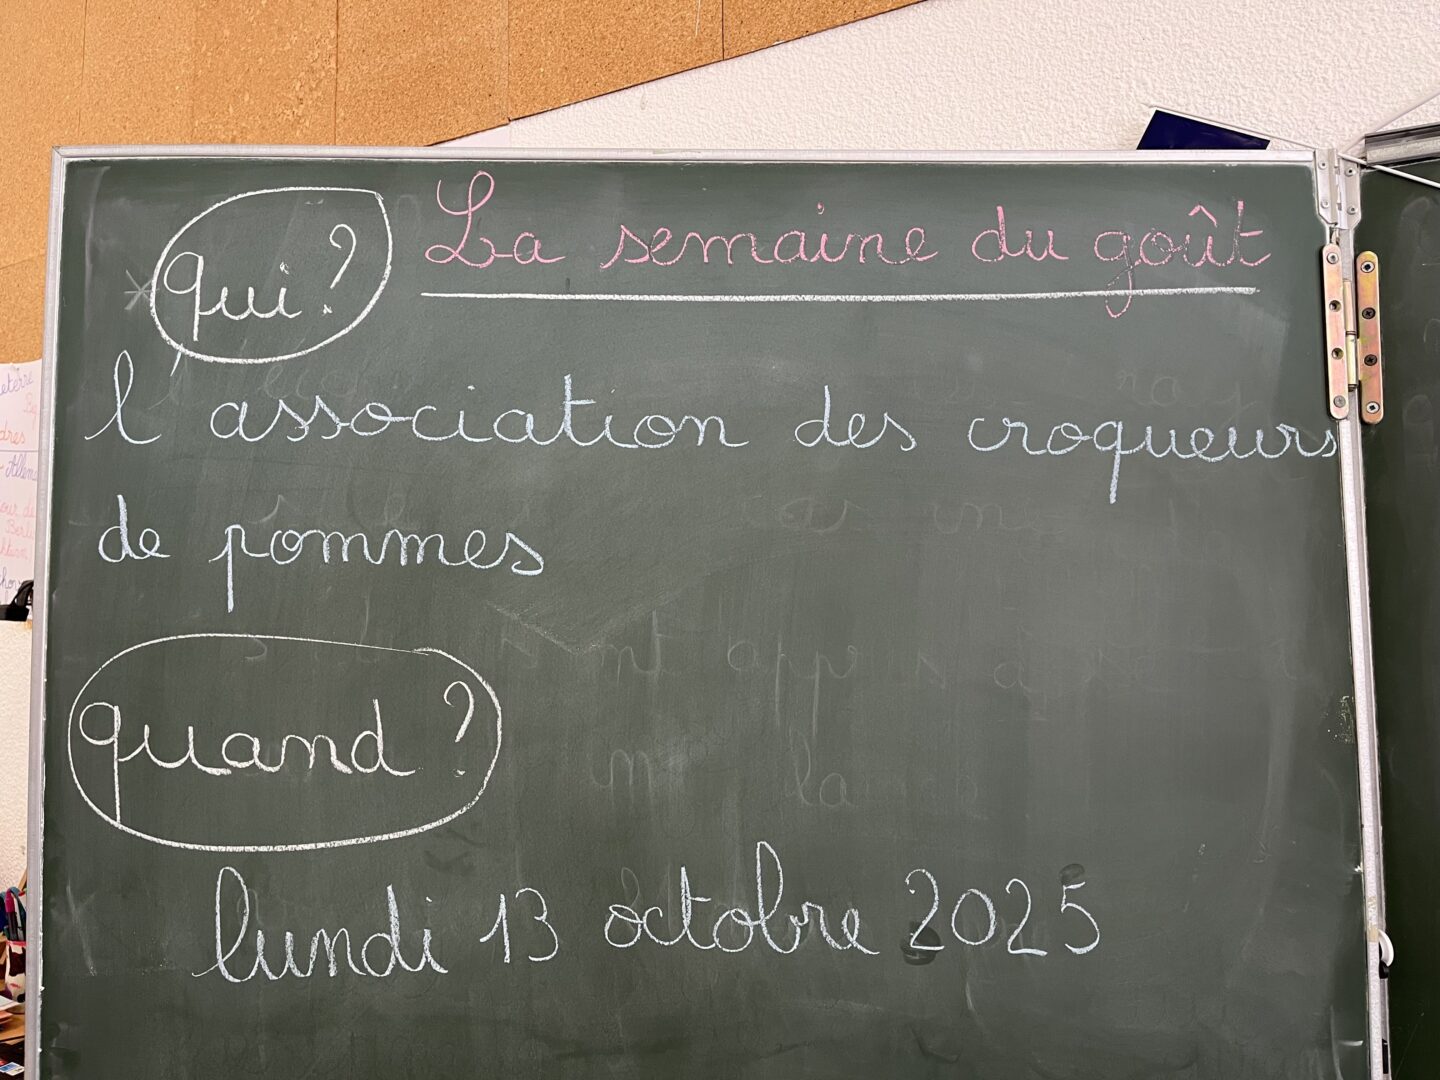 La semaine du goût
qui ?
l'association des croqueurs
de pommes
quand ?
lundi 13 octobre 2025